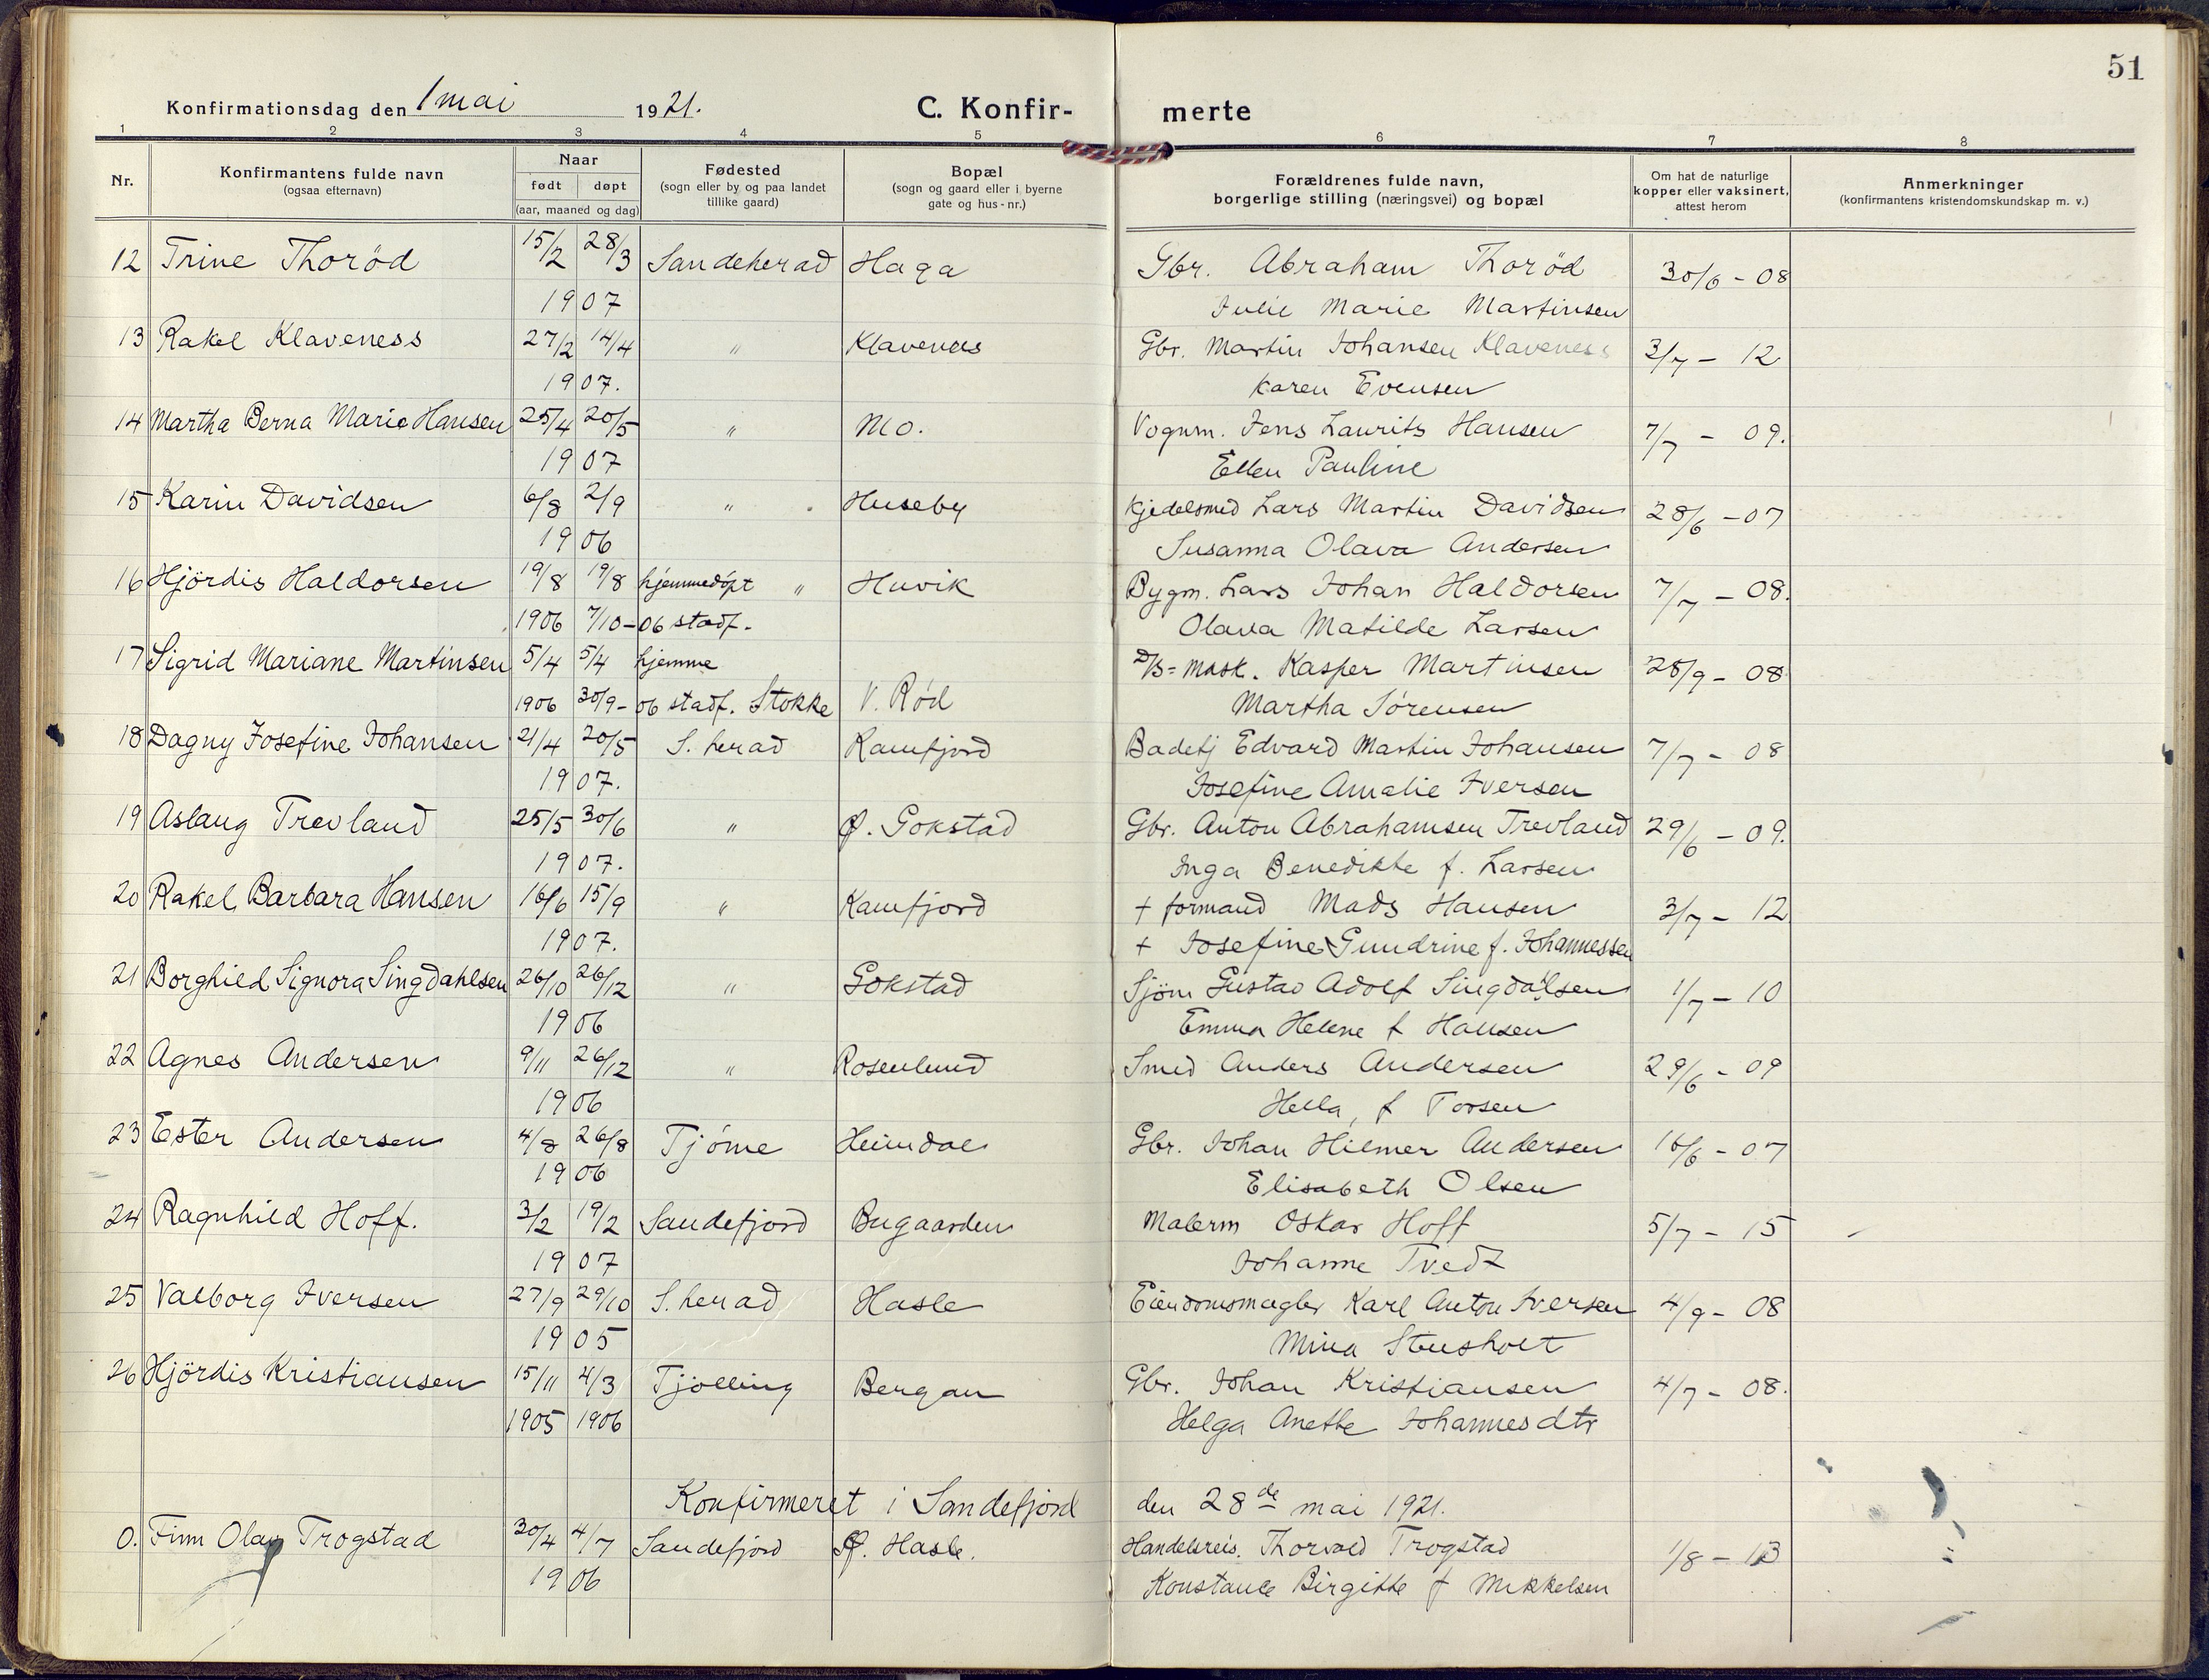 51
Konfirmationsdag den 1 mai 1921. C. Konfir- merte
1 2 3 4 5 6 7 8
Nr. Konfirmantens fulde navn (ogsaa efternavn) Naar født døpt (aar, maaned og dag) Fødested (sogn eller by og paa landet tillike gaard) Bopæl (sogn og gaard eller i byerne gate og hus-nr.) Forældrenes fulde navn, borgerlige stilling (næringsvei) og bopæl Om hat de naturlige kopper eller vaksinert, attest herom Anmerkninger (konfirmantens kristendomskundskap m. v.)
12 Trine Thorød 15/2 28/3 Sandeherad Haga Gbr. Abraham Thorød 30/6 - 08
1907 Julie Marie Martinsen
13 Rakel Klaveness 27/2 14/4 " Klavenes Gbr. Martin Johansen Klaveness 3/7 - 12
1907. Karen Evensen
14 Martha Berna Marie Hansen 25/4 20/5 " Mo. Vognm. Jens Laurits Hansen 7/7 - 09.
1907 Ellen Pauline
15 Karin Davidsen 6/8 2/9 " Huseby Kjedelsmed Lars Martin Davidsen 28/6 - 07
1906 Susanna Olava Andersen
16 Hjördis Haldorsen 19/8 19/8 hjemmedøpt " Huvik Bygm. Lars Johan Haldorsen 7/7 - 08.
1906 7/10 - 06 stadf. Olava Matilde Larsen
17 Sigrid Mariane Martinsen 5/4 5/4 hjemme D/S= mask. Kasper Martinsen 28/9 - 08
1906 30/9 - 06 stadf. Stokke V. Rød Martha Sørensen
18 Dagny Josefine Johansen 21/4 20/5 S. herad Kamfjord Badetj Edvard Martin Johansen 7/7 - 08
1907. Josefine Amalie Iversen
19 Aslaug Trevland 25/5 30/6 " Ø. Gokstad Gbr. Anton Abrahamsen Trevland 29/6 - 09.
1907. Inga Benedikte f. Larsen
20 Rakel Barbara Hansen 16/6 15/9 " Kamfjord + formand Mads Hansen 3/7 - 12
1907. + Josefine Gundrine f. Johannessen
21 Borghild Signora Singdahlsen 26/10 26/12 " Gokstad Sjöm Gustav Adolf Singdalsen 1/7 - 10
1906 Emma Helene f Hansen
22 Agnes Andersen 9/11 26/12 " Rosenlund Smed Anders Andersen 29/6 - 09
1906 Hella, f Torsen
23 Ester Andersen 4/8 26/8 Tjöme Heimdal Gbr. Johan Hilmer Andersen 16/6 - 07
1906 Elisabeth Olsen
24 Ragnhild Hoff. 3/2 19/2 Sandefjord Bugaarden Malerm Oskar Hoff 5/7 - 15
1907 Johanne Tvedt
25 Valborg Iversen 27/9 29/10 S. herad Hasle Eiendomsmægler Karl Anton Iversen 4/9 - 08
1905 Mina Stensholt
26 Hjördis Kristiansen 15/11 4/3 Tjölling Bergan Gbr. Johan Kristiansen 4/7 - 08.
1905 1906 Helga Anette Johannesdtr
Konfirmeret i Sandefjord den 28de mai 1921.
0. Finn Olav Trogstad 30/4 4/7 Sandefjord Ø. Hasle. Handelsreis. Thorvald Trogstad 1/8 - 13
1906 Konstance Birgitte f Mikkelsen